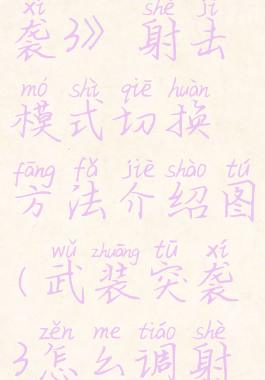 xí shè jī
袭3》射击
mó shì qiē huàn
模式切换
fāng fǎ jiè shào tú
方法介绍图
wǔ zhuāng tū xí
(武装突袭
zěn me tiáo shè
3怎么调射